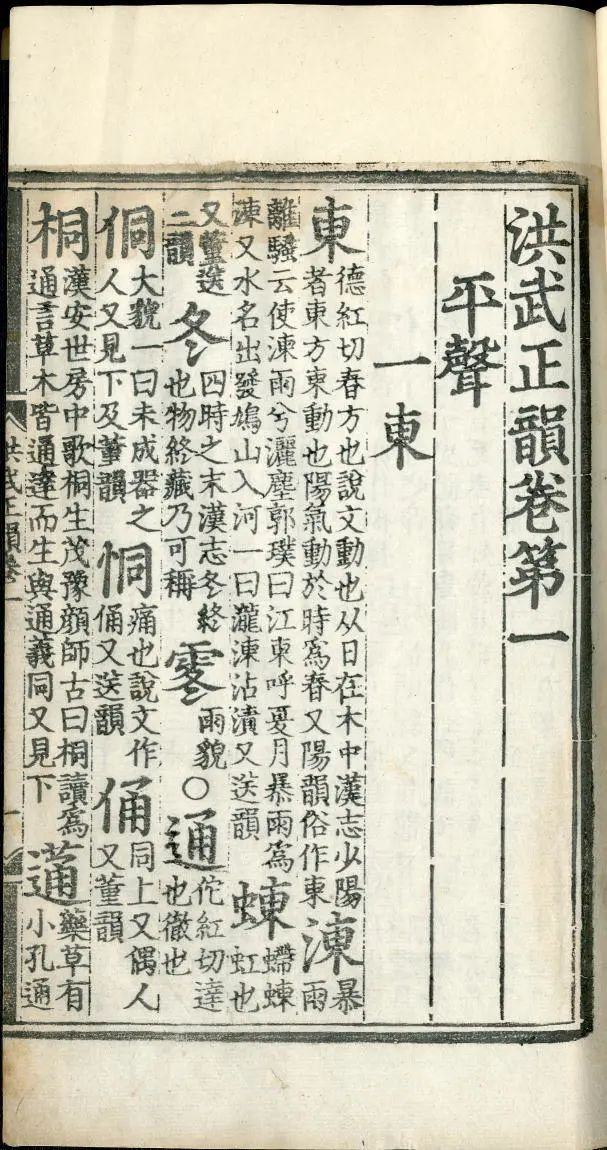 洪武正韻卷第一
平聲
一東
東德紅切春方也說文動也从日在木中漢志少陽者東方東動也陽氣動於時為春又陽韻俗作東涷暴雨
離騷云使涷雨兮灑塵郭璞曰江東呼夏月暴雨為涷又水名出發鳩山入河一曰瀧涷沾漬又送韻蝀螮蝀虹也
又董送二韻冬四時之末漢志冬終也物終藏乃可稱䨦雨貌○通佗紅切達也徹也
侗大貌一曰未成器之人又見下及董韻恫痛也說文作俑又送韻俑同上又偶人又董韻
桐漢安世房中歌桐生茂豫顔師古曰桐讀為通言草木皆通達而生與通義同又見下蓪藥草有小孔通
洪武正韻卷一
一